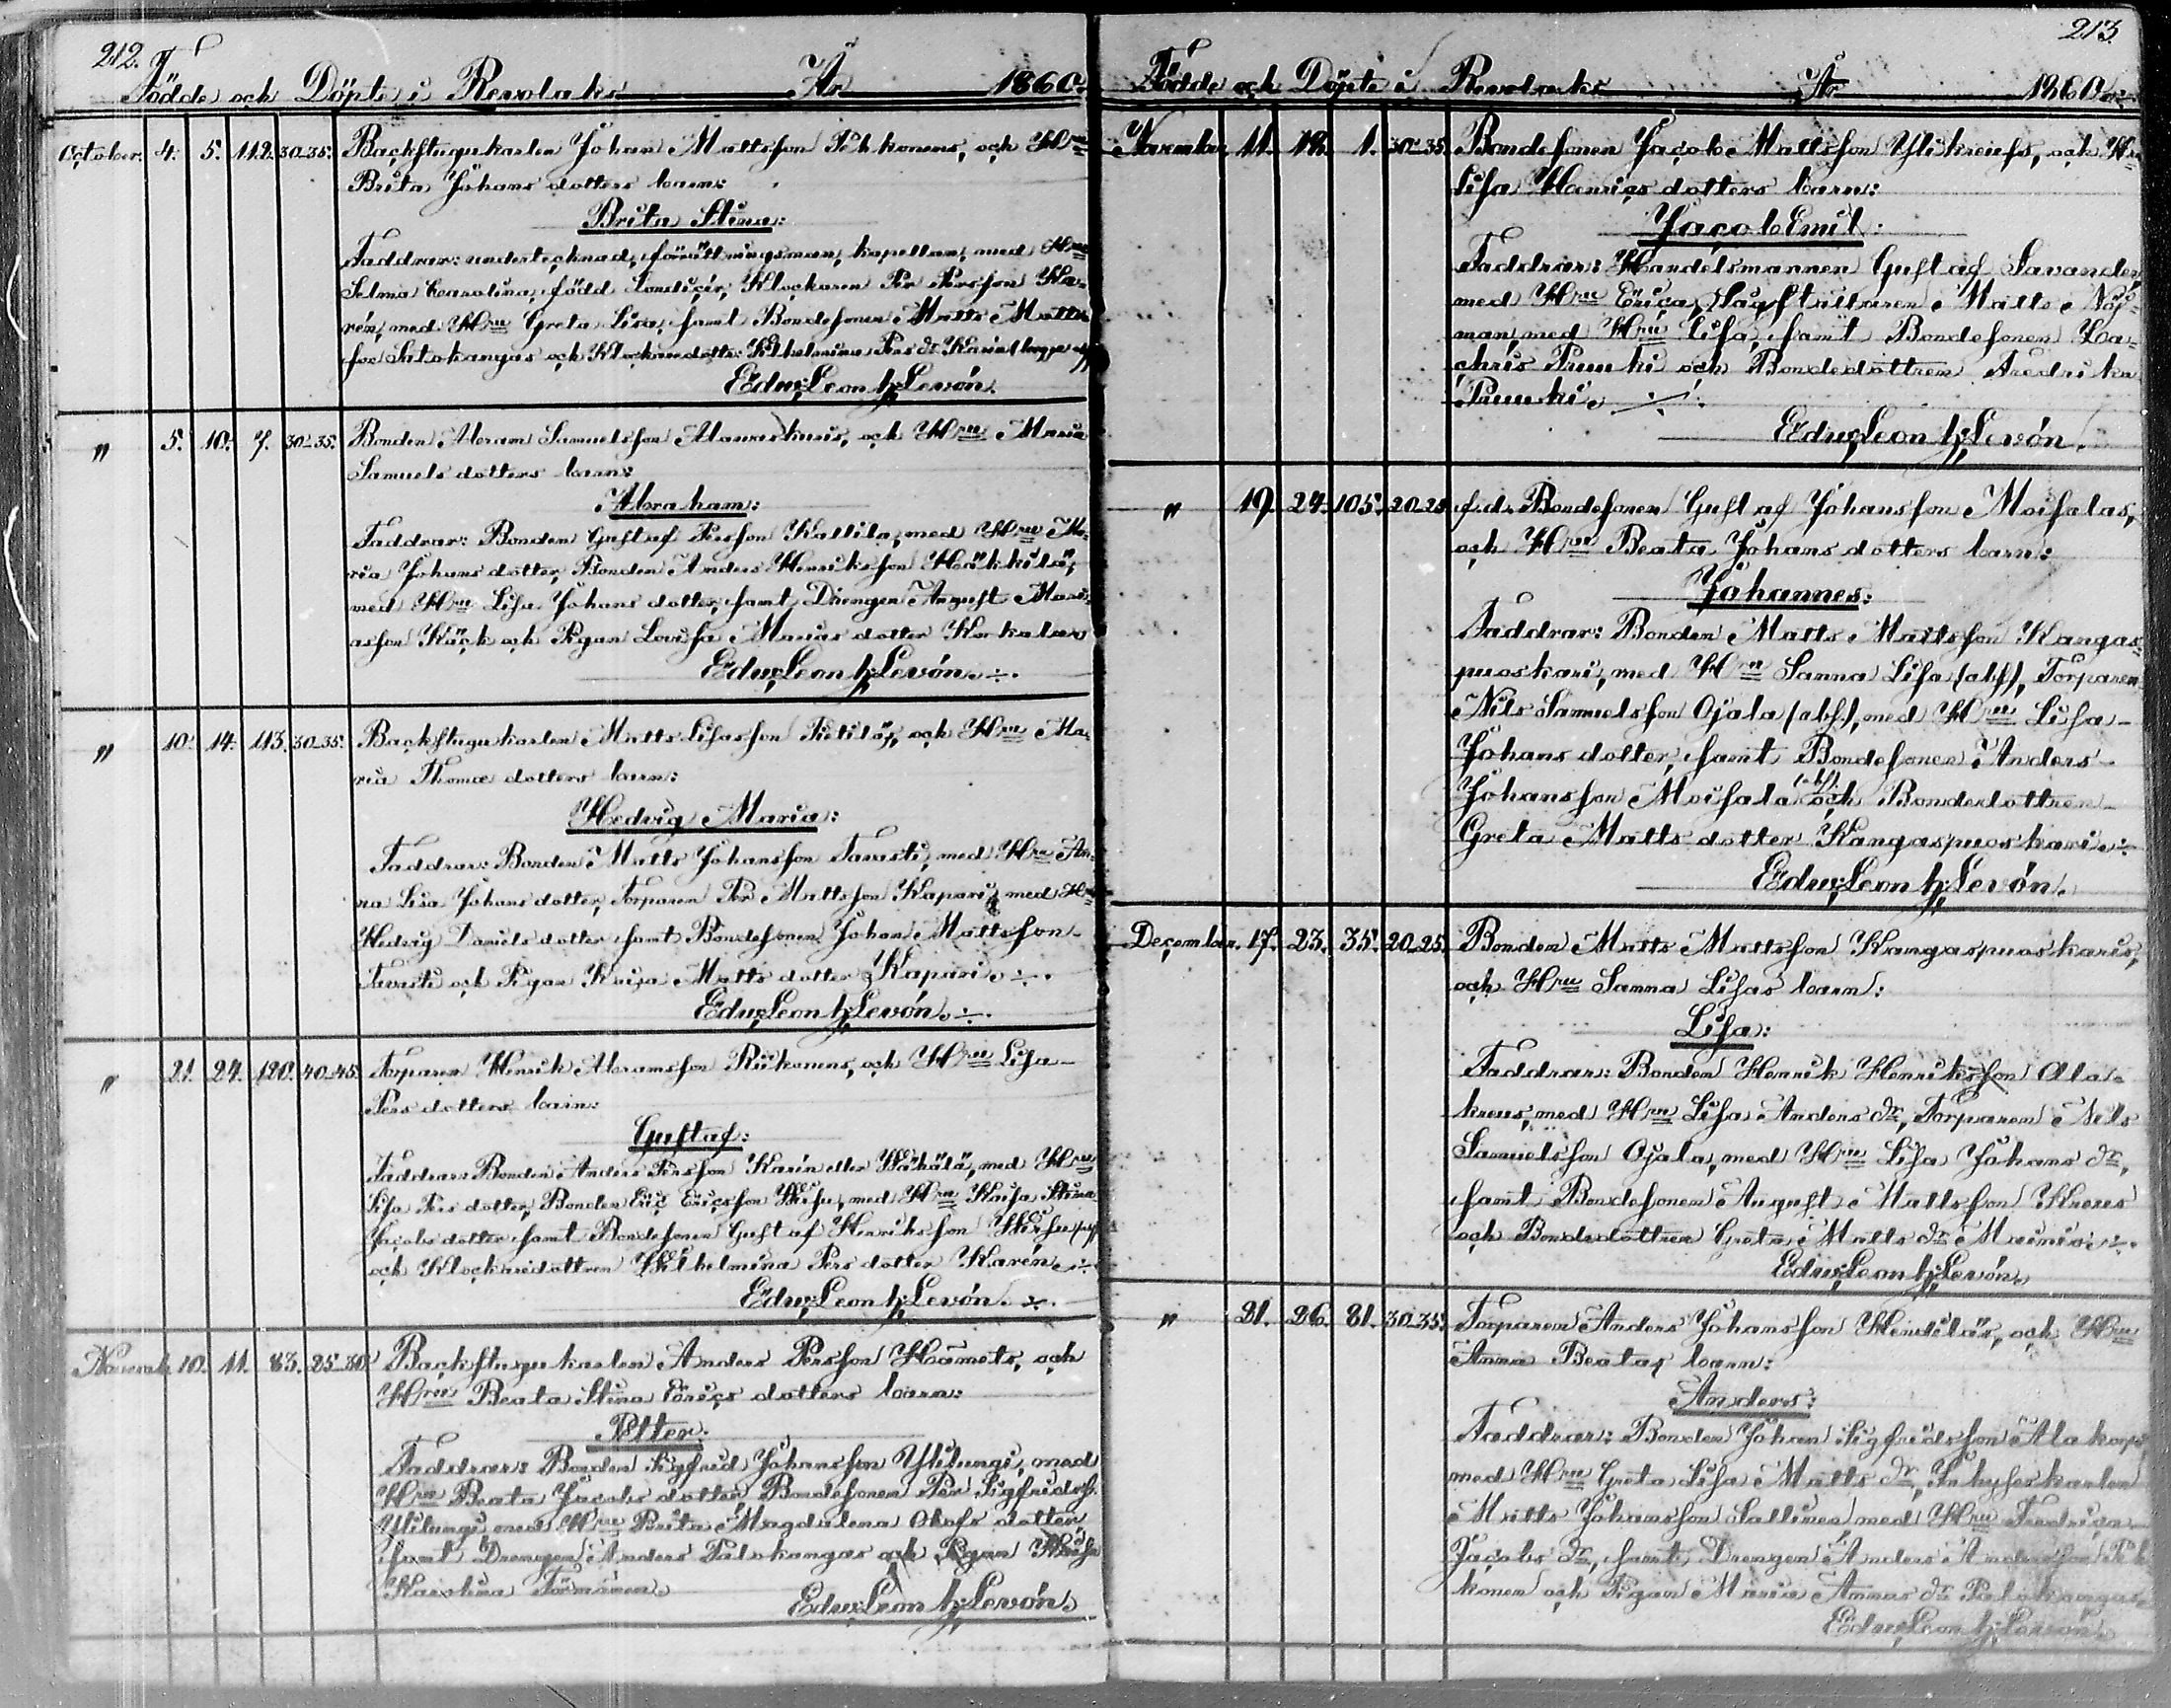 212.
Födde och Döpte i Revolaks År 1860.
October. 4. 5. 112. 30-35. Backstugukarlen Johan Mattsson Pehkonens, och Hru
Brita Johans dotters barn:
Brita Stina:
Faddrar: undertecknad, förrättningsman, kapellan, med Hru
Selma Carolina, född Londicér, Klockaren Per Persson Ka-
rén, med Hru Greta Lisa, samt Bondesonen Matts Matts-
son Salokangas och Klockaredottr: Wilhelmina Pers dr Karén
Edw: Leon h: Levón.
" 5. 10. 7. 30-35. Bonden Abram Samuelsson Alavaskuris, och Hru Maria
Samuels dotters barn:
Abraham:
Faddrar: Bonden Gustaf Persson Kallila, med Hru Ma-
ria Johans dotter, Bonden Anders Henriksson Heikkilä,
med Hru Lisa Johans dotter, samt Drengen August Mari-
asson Käck och Pigan Lovisa Marias dotter Korkala
Edw: Leon h: Levón.
" 10. 14. 113. 30-35. Backstugukarlen Matts Lisasson Pietiläs, och Hru Ma-
ria Thomæ dotters barn:
Hedvig Maria:
Faddrar: Bonden Matts Johansson Tavasti, med Hru An-
na Lisa Johans dotter, Torparen Per Mattsson Kapari, med H
Hedvig Daniels dotter samt Bondesonen Johan Mattsson
Tavasti och Pigan Kaisa Matts dotter Kapari
Edw: Leon h: Levón.
" 21. 24. 120. 40-45. Torparen Henrik Abramsson Riikonens, och Hru Lisa
Pers dotters barn:
Gustaf:
Faddrar: Bonden Anders Persson Karén eller Wähälä, med Hru
Lisa Pers dotter, Bonden Eric Ericsson, med Hru Kaisa Stina
Jacobs dotter samt Bondesonen Gustaf Henriksson
och Klockaredottren Wilhelmina Pers dotter Karén.
Edw: Leon h: Levón.
Novemb. 10. 11. 83. 25-30. Backstugukarlen Anders Persson Hämets, och
Hru Beata Stina Erics dotters barn:
Petter.
Faddrar: Bonden Sigfrid Johansson Ylilungi, med
Hru Beata Jacobs dotter Bondesonen Per Sigfridss.
Ylilungi med Hru Brita Magdalena Olofs dotter
samt Drengen Anders Palokangas och Pigan
Karolina Törmänen.
Edw: Leon h: Levón.
213.
Födde och Döpte i Revolaks År 1860.
November 11. 18. 1. 30-35. Bondesonen Jacob Mattsson Ylikreuss, och Hru
Lisa Henrics dotters barn:
Jacob Emil:
Faddrar: Handelsmannen Gustaf Savander,
med Hru Erica, Sagställaren Matts Nöj-
man, med Hru Lisa, samt Bondesonen Za-
chris Pruuki och Bondedottren Fredrika
Pruuki.
Edw: Leon h: Levón.
" 19. 24. 105. 20-25. f.d. Bondesonen Gustaf Johansson Moisalas,
och Hru Beata Johans dotters barn:
Johannes:
Faddrar: Bonden Matts Mattsson Kangas-
puoskari, med Hru Sanna Lisa (abs), Torparen
Nils Samuelsson Ojala (abs), med Hru Lisa
Johans dotter, samt Bondesonen Anders
Johansson Moisala (abs) och Bondedottren
Greta Matts dotter Kangaspuoskari
Edw: Leon h: Levón.
December. 17. 23. 35. 20-25. Bonden Matts Mattsson Kangaspuoskaris,
och Hru Sanna Lisas barn:
Lisa:
Faddrar: Bonden Henrik Henriksson Ala-
kreus, med Hru Lisa Anders dr, Torparen Nils
Samuelsson Ojala, med Hru Lisa Johans dr,
samt Bondesonen August Mattsson Kreus
och Bondedottren Greta Matts dr
Edw: Leon h: Levón.
" 21. 26. 81. 30-35. Torparen Anders Johansson Hendeläs, och Hru
Anna Beatas barn:
Anders:
Faddrar: Bonden Johan Sigfridsson Ala korp
med Hru Greta Lisa Matts dr, Inhyseskarlen
Matts Johansson Sallinen med Hru Fredrica
Jacobs dr, samt Drengen Anders Andersson Peh
konen och Pigan Maria Annas dr Palokangas
Edw: Leon h: Levón.